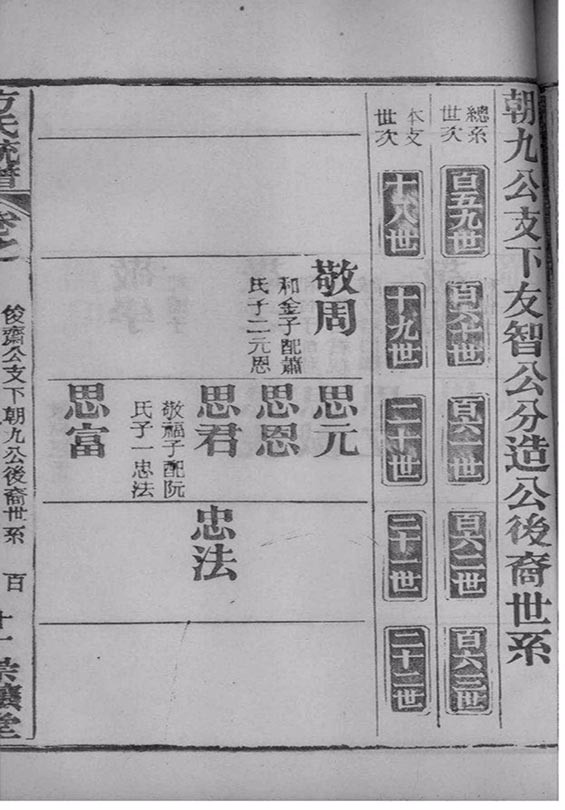 朝九公支下友智公分造公後裔世系
總系世次
百五九世
百六十世
百六一世
百六二世
百六三世
本支世次
十八世
十九世
二十世
二十一世
二十二世
敬周
和金子配蕭
氏子二元恩
思元
思恩
思君
敬福子配阮
氏子一忠法
思富
忠法
方氏統譜
卷之
俊齋公支下朝九公後裔世系
百
十一